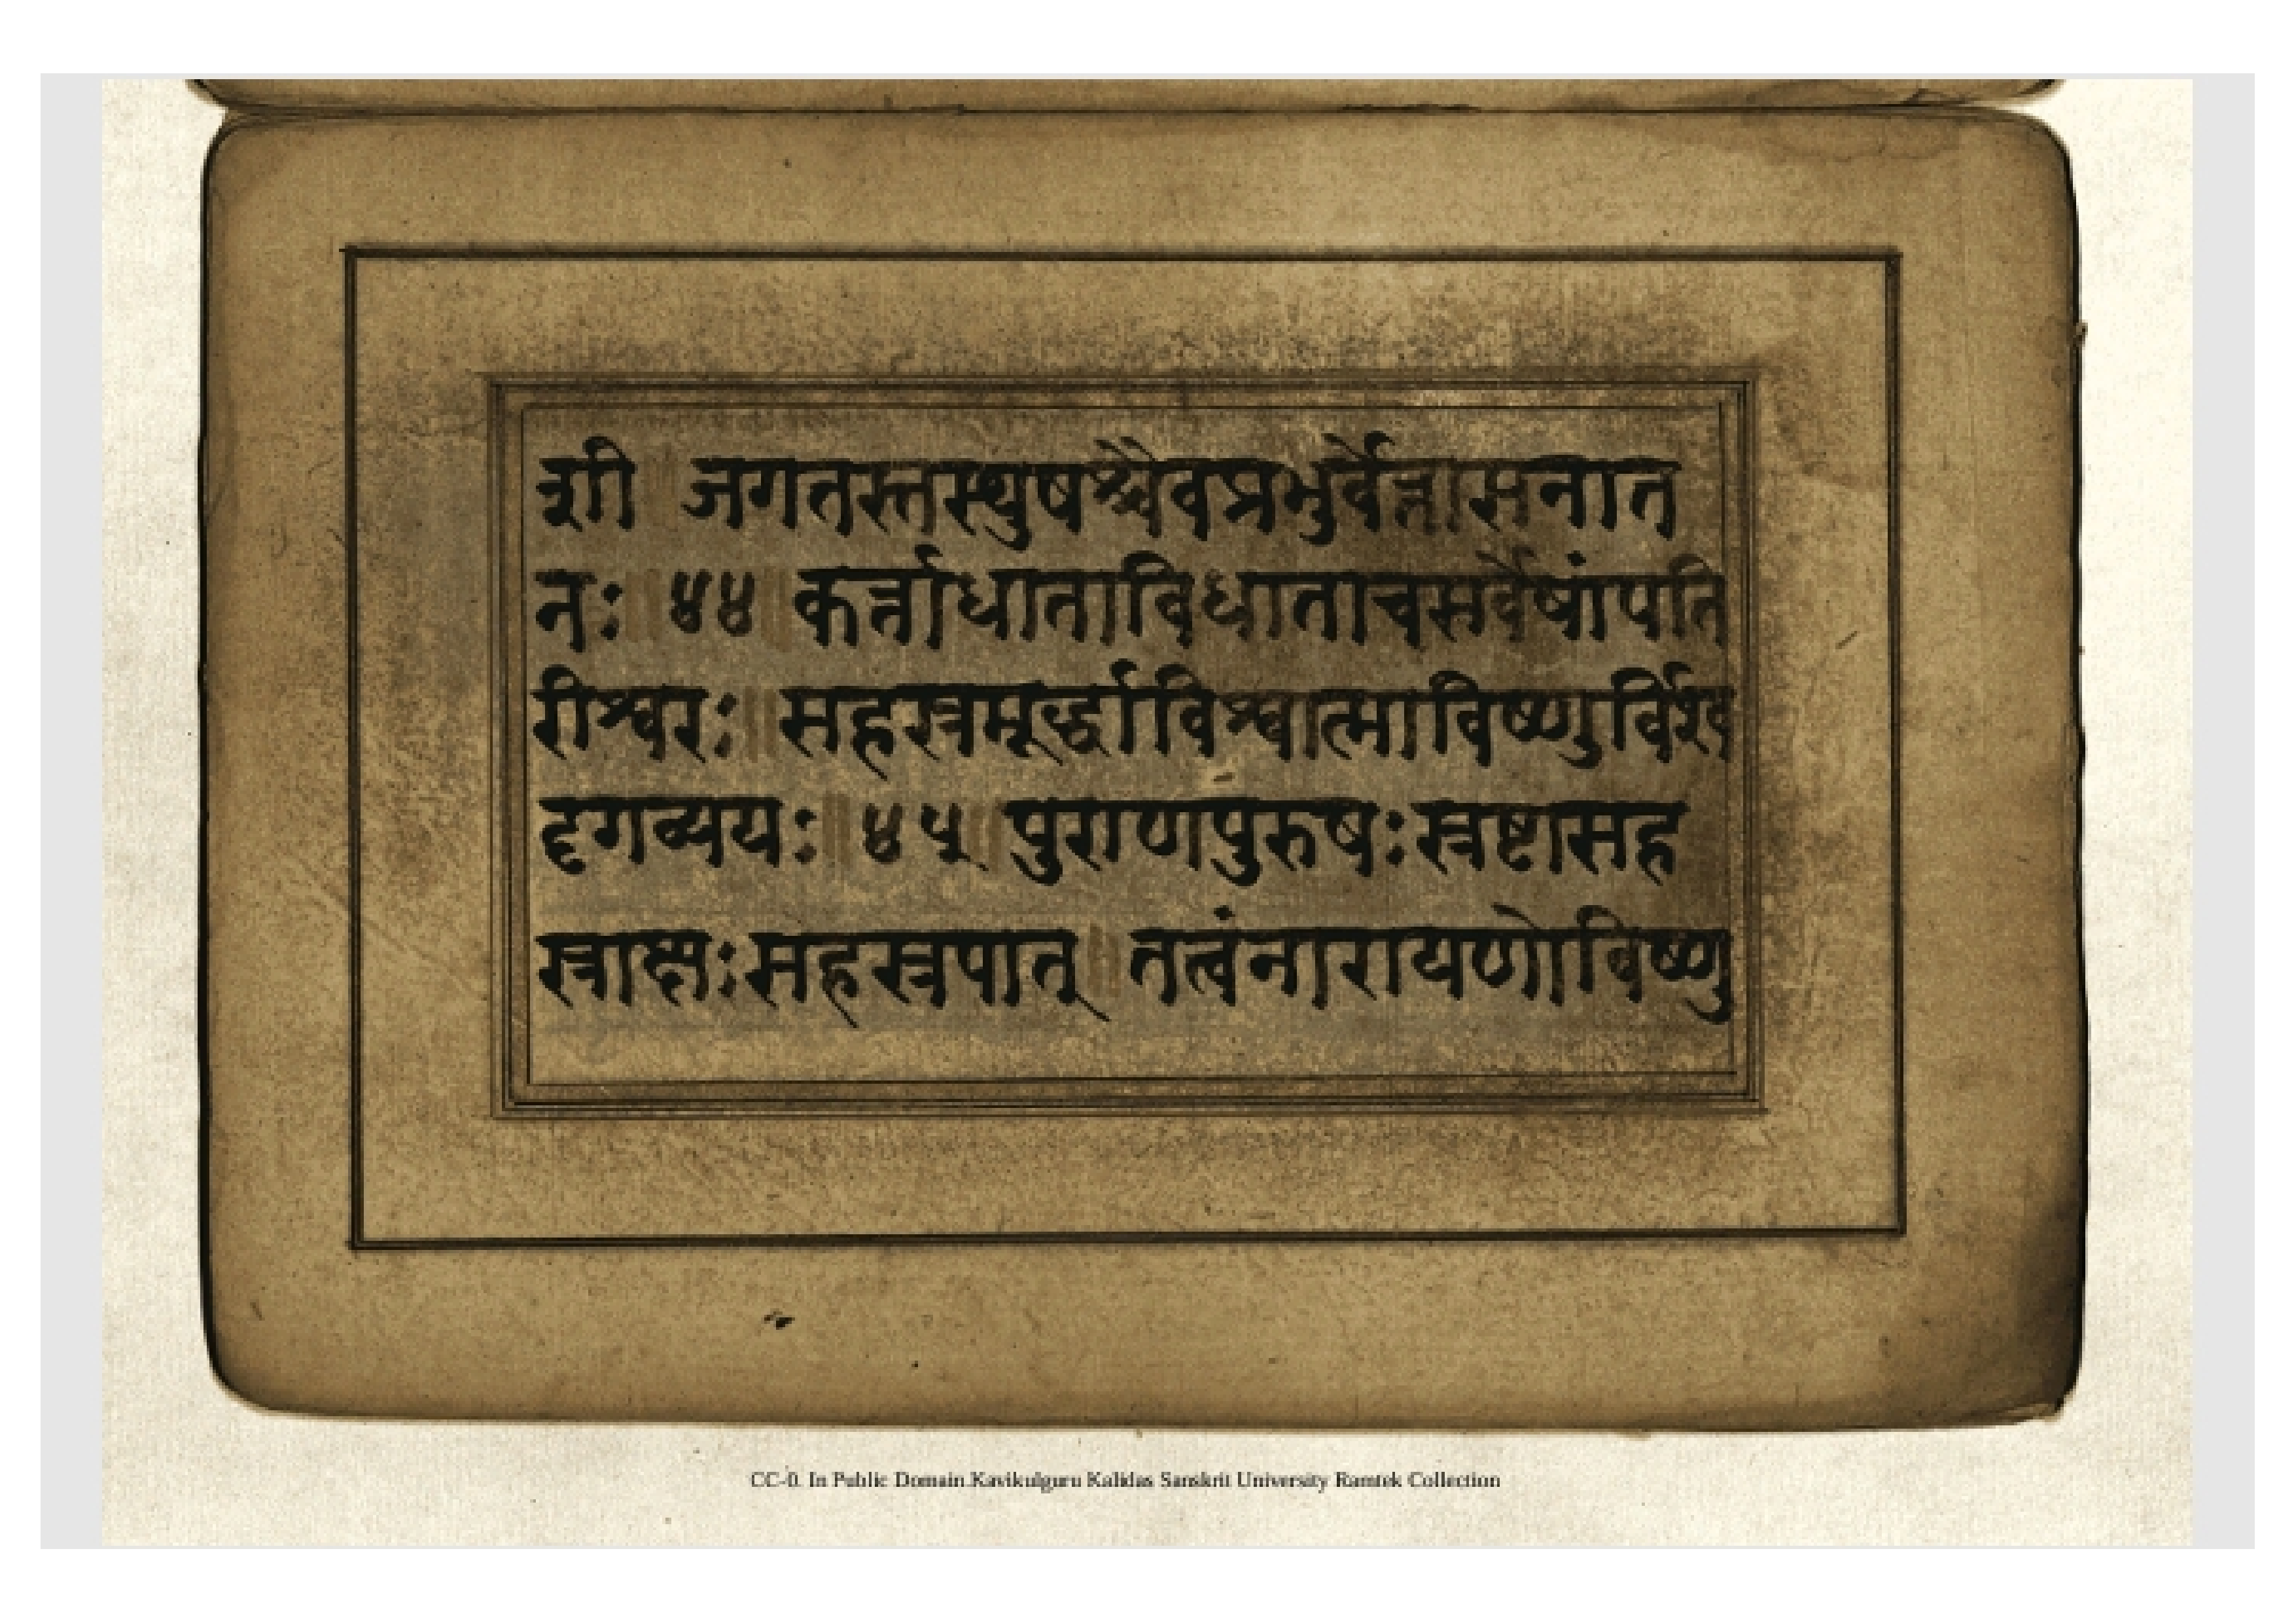 शी ॥ जगतस्तस्थुषश्चैवप्रभुर्वेत्तासनात
नः ॥ ४४ ॥ कर्त्ताधाताविधाताचसर्वेषांपति
रीश्वरः ॥ सहस्रमूर्द्धाविश्वात्माविष्णुर्विश्व
दृगव्ययः ॥ ४५ ॥ पुराणपुरुषःस्रष्टासह
स्राक्षःसहस्रपात् ॥ तत्वंनारायणोविष्णु
CC-0. In Public Domain.Kavikulguru Kalidas Sanskrit University Ramtek Collection